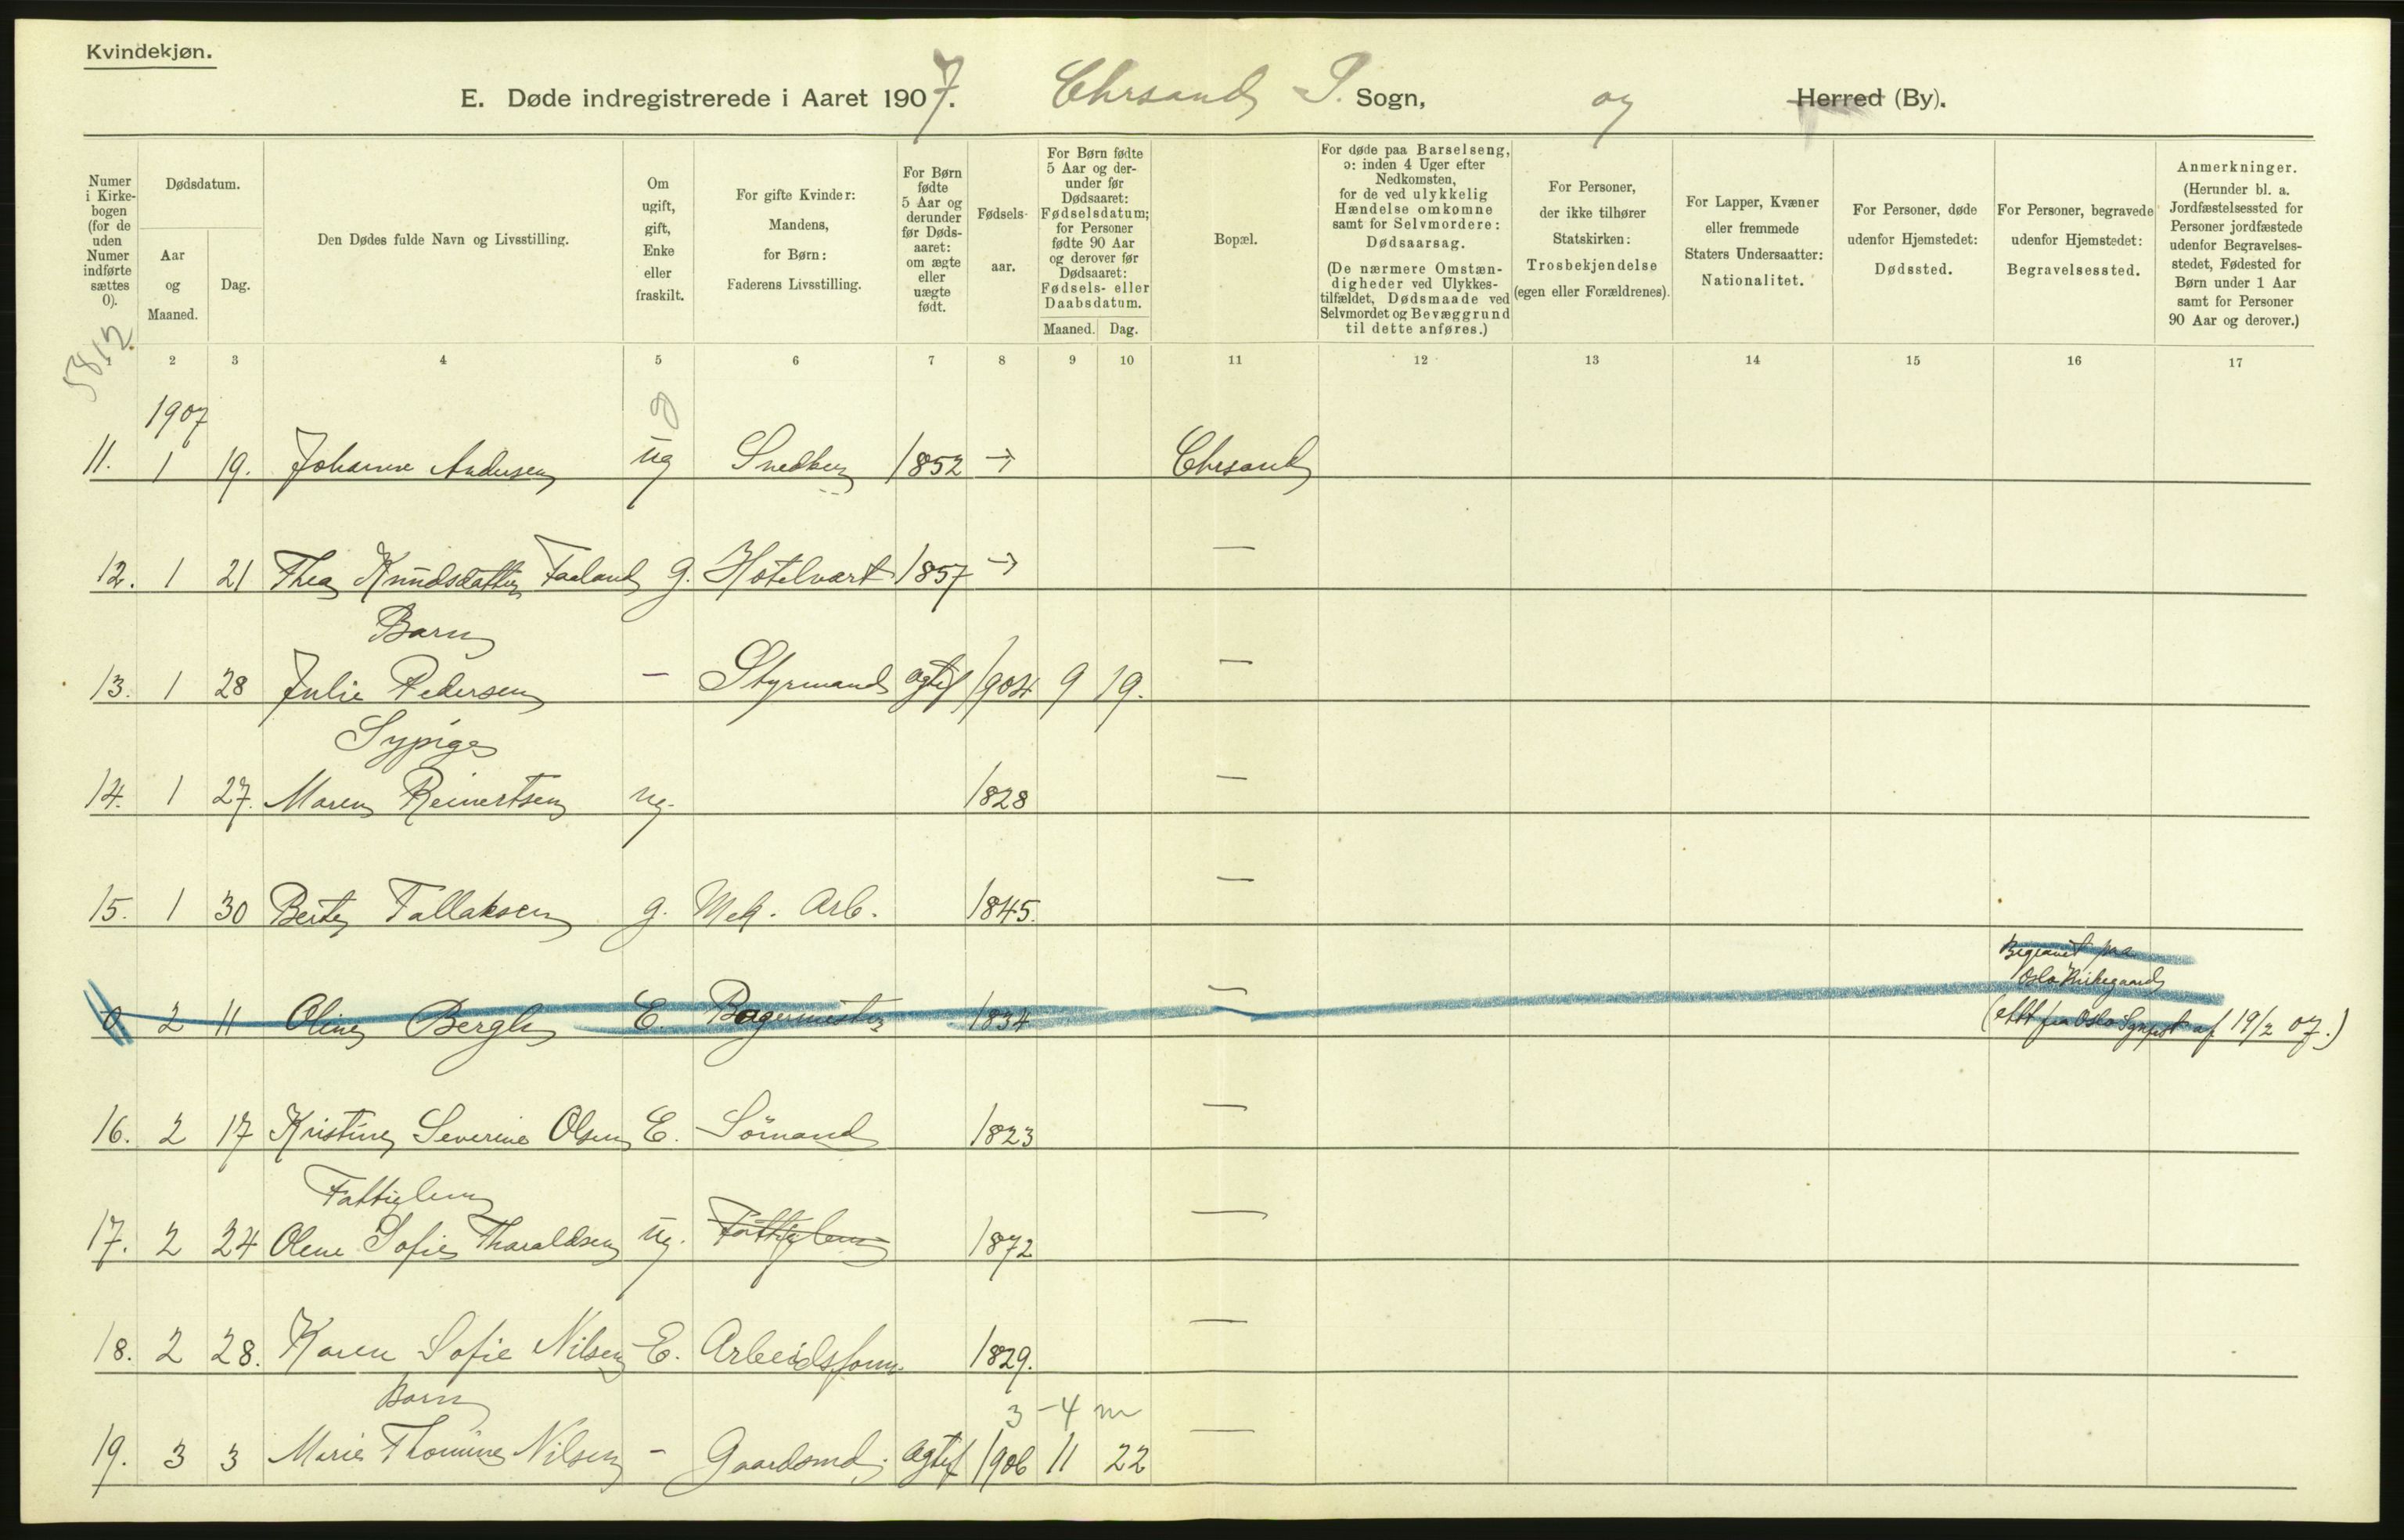 Kvindekjøn.
E. Døde indregistrerede i Aaret 1907. Chrsand S. Sogn, og Herred (By).
Numer
i Kirke-
bogen
(for de
uden
Numer
indførte
sættes
0).
Dødsdatum.
Aar
og
Maaned.
Dag.
Den Dødes fulde Navn og Livsstilling.
Om
ugift,
gift,
Enke
eller
fraskilt.
For gifte Kvinder:
Mandens,
for Børn:
Faderens Livsstilling.
For Børn
fødte
5 Aar og
derunder
før Døds-
aaret:
om ægte
eller
uægte
født.
Fødsels-
aar.
For Børn fødte
5 Aar og der-
under før
Dødsaaret:
Fødselsdatum;
for Personer
fødte 90 Aar
og derover før
Dødsaaret:
Fødsels- eller
Daabsdatum.
Maaned. Dag.
Bopæl.
For døde paa Barselseng,
ɔ: inden 4 Uger efter
Nedkomsten,
for de ved ulykkelig
Hændelse omkomne
samt for Selvmordere:
Dødsaarsag.
(De nærmere Omstæn-
digheder ved Ulykkes-
tilfældet, Dødsmaade ved
Selvmordet og Bevæggrund
til dette anføres.)
For Personer,
der ikke tilhører
Statskirken:
Trosbekjendelse
(egen eller Forældrenes).
For Lapper, Kvæner
eller fremmede
Staters Undersaatter:
Nationalitet.
For Personer, døde
udenfor Hjemstedet:
Dødssted.
For Personer, begravede
udenfor Hjemstedet:
Begravelsessted.
Anmerkninger.
(Herunder bl. a.
Jordfæstelsessted for
Personer jordfæstede
udenfor Begravelses-
stedet, Fødested for
Børn under 1 Aar
samt for Personer
90 Aar og derover.)
5812
2 3 4 5 6 7 8 9 10 11 12 13 14 15 16 17
1907 g
11. 1 19. Johanne Andersen ug Snedker 1852 → Chrsand
12. 1 21 Thea Knudsdatter Faaland g. Hotelvært 1857 → —
Barn
13. 1 28 Julie Pedersen – Styrmand ægtef 1904 9 19. —
Sypige
14. 1 27. Maren Reinertsen ug. 1828 —
15. 1 30 Berte Tallaksen g. Mek. Arb. 1845. —
Begravet paa
Oslo Kirkegaard
0 2 11 Oline Bergh E. Bagermester 1834 — (att fra Oslo Sgnpst af 19/2 07.)
16. 2 17 Kristine Severine Olsen E. Sömand 1823 —
Fattiglem
17. 2 24 Olene Sofie Tharaldsen ug. Fattiglem 1872 —
18. 2 28. Karen Sofie Nilsen E. Arbeidsform. 1829. —
Barn 3-4 m
19. 3 3 Marie Thomine Nilsen – Gaardsmd. ægtef 1906 11 22 —